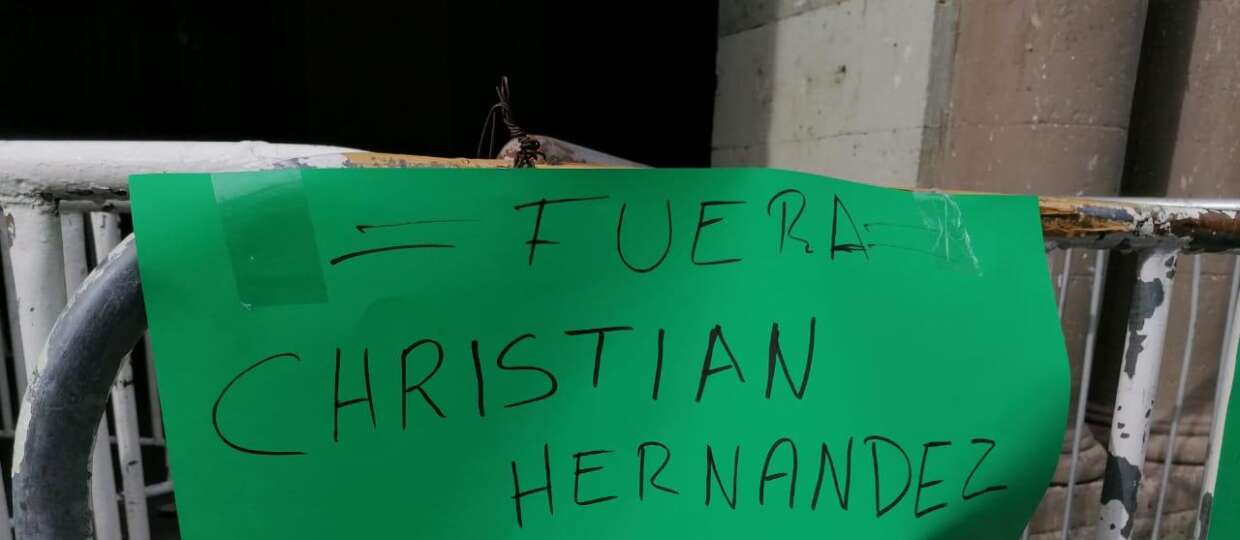 = FUERA =
CHRISTIAN
HERNANDEZ